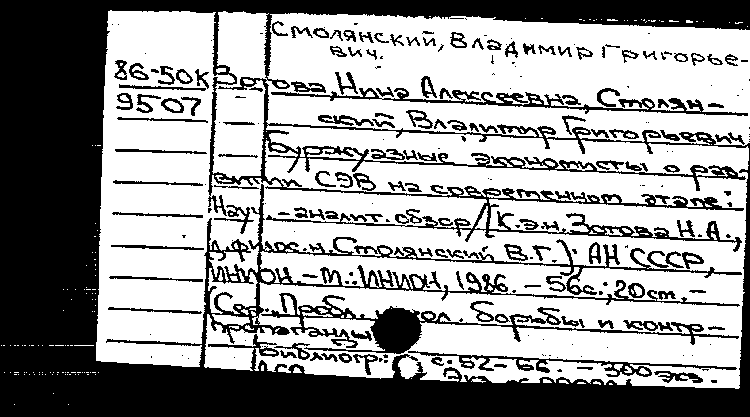 Смолянский, Владимир Григорье-
вич.
86-50к Зотова, Нина Алексеевна, Смолян-
9507 ский, Владимир Григорьевич
Буржуазные экономисты о раз-
витии СЭВ на современном этапе:
Науч.-аналит. обзор/[К.э.н. Зотова Н.А.,
д.филос.н. Смолянский В.Г.]; АН СССР,
ИНИОН. - М.: ИНИОН, 1986. - 56с.; 20см. -
(Сер. Пробл. борьбы и контр-
пропаганды
Библиогр.: с. 52-66. - 300 экз.